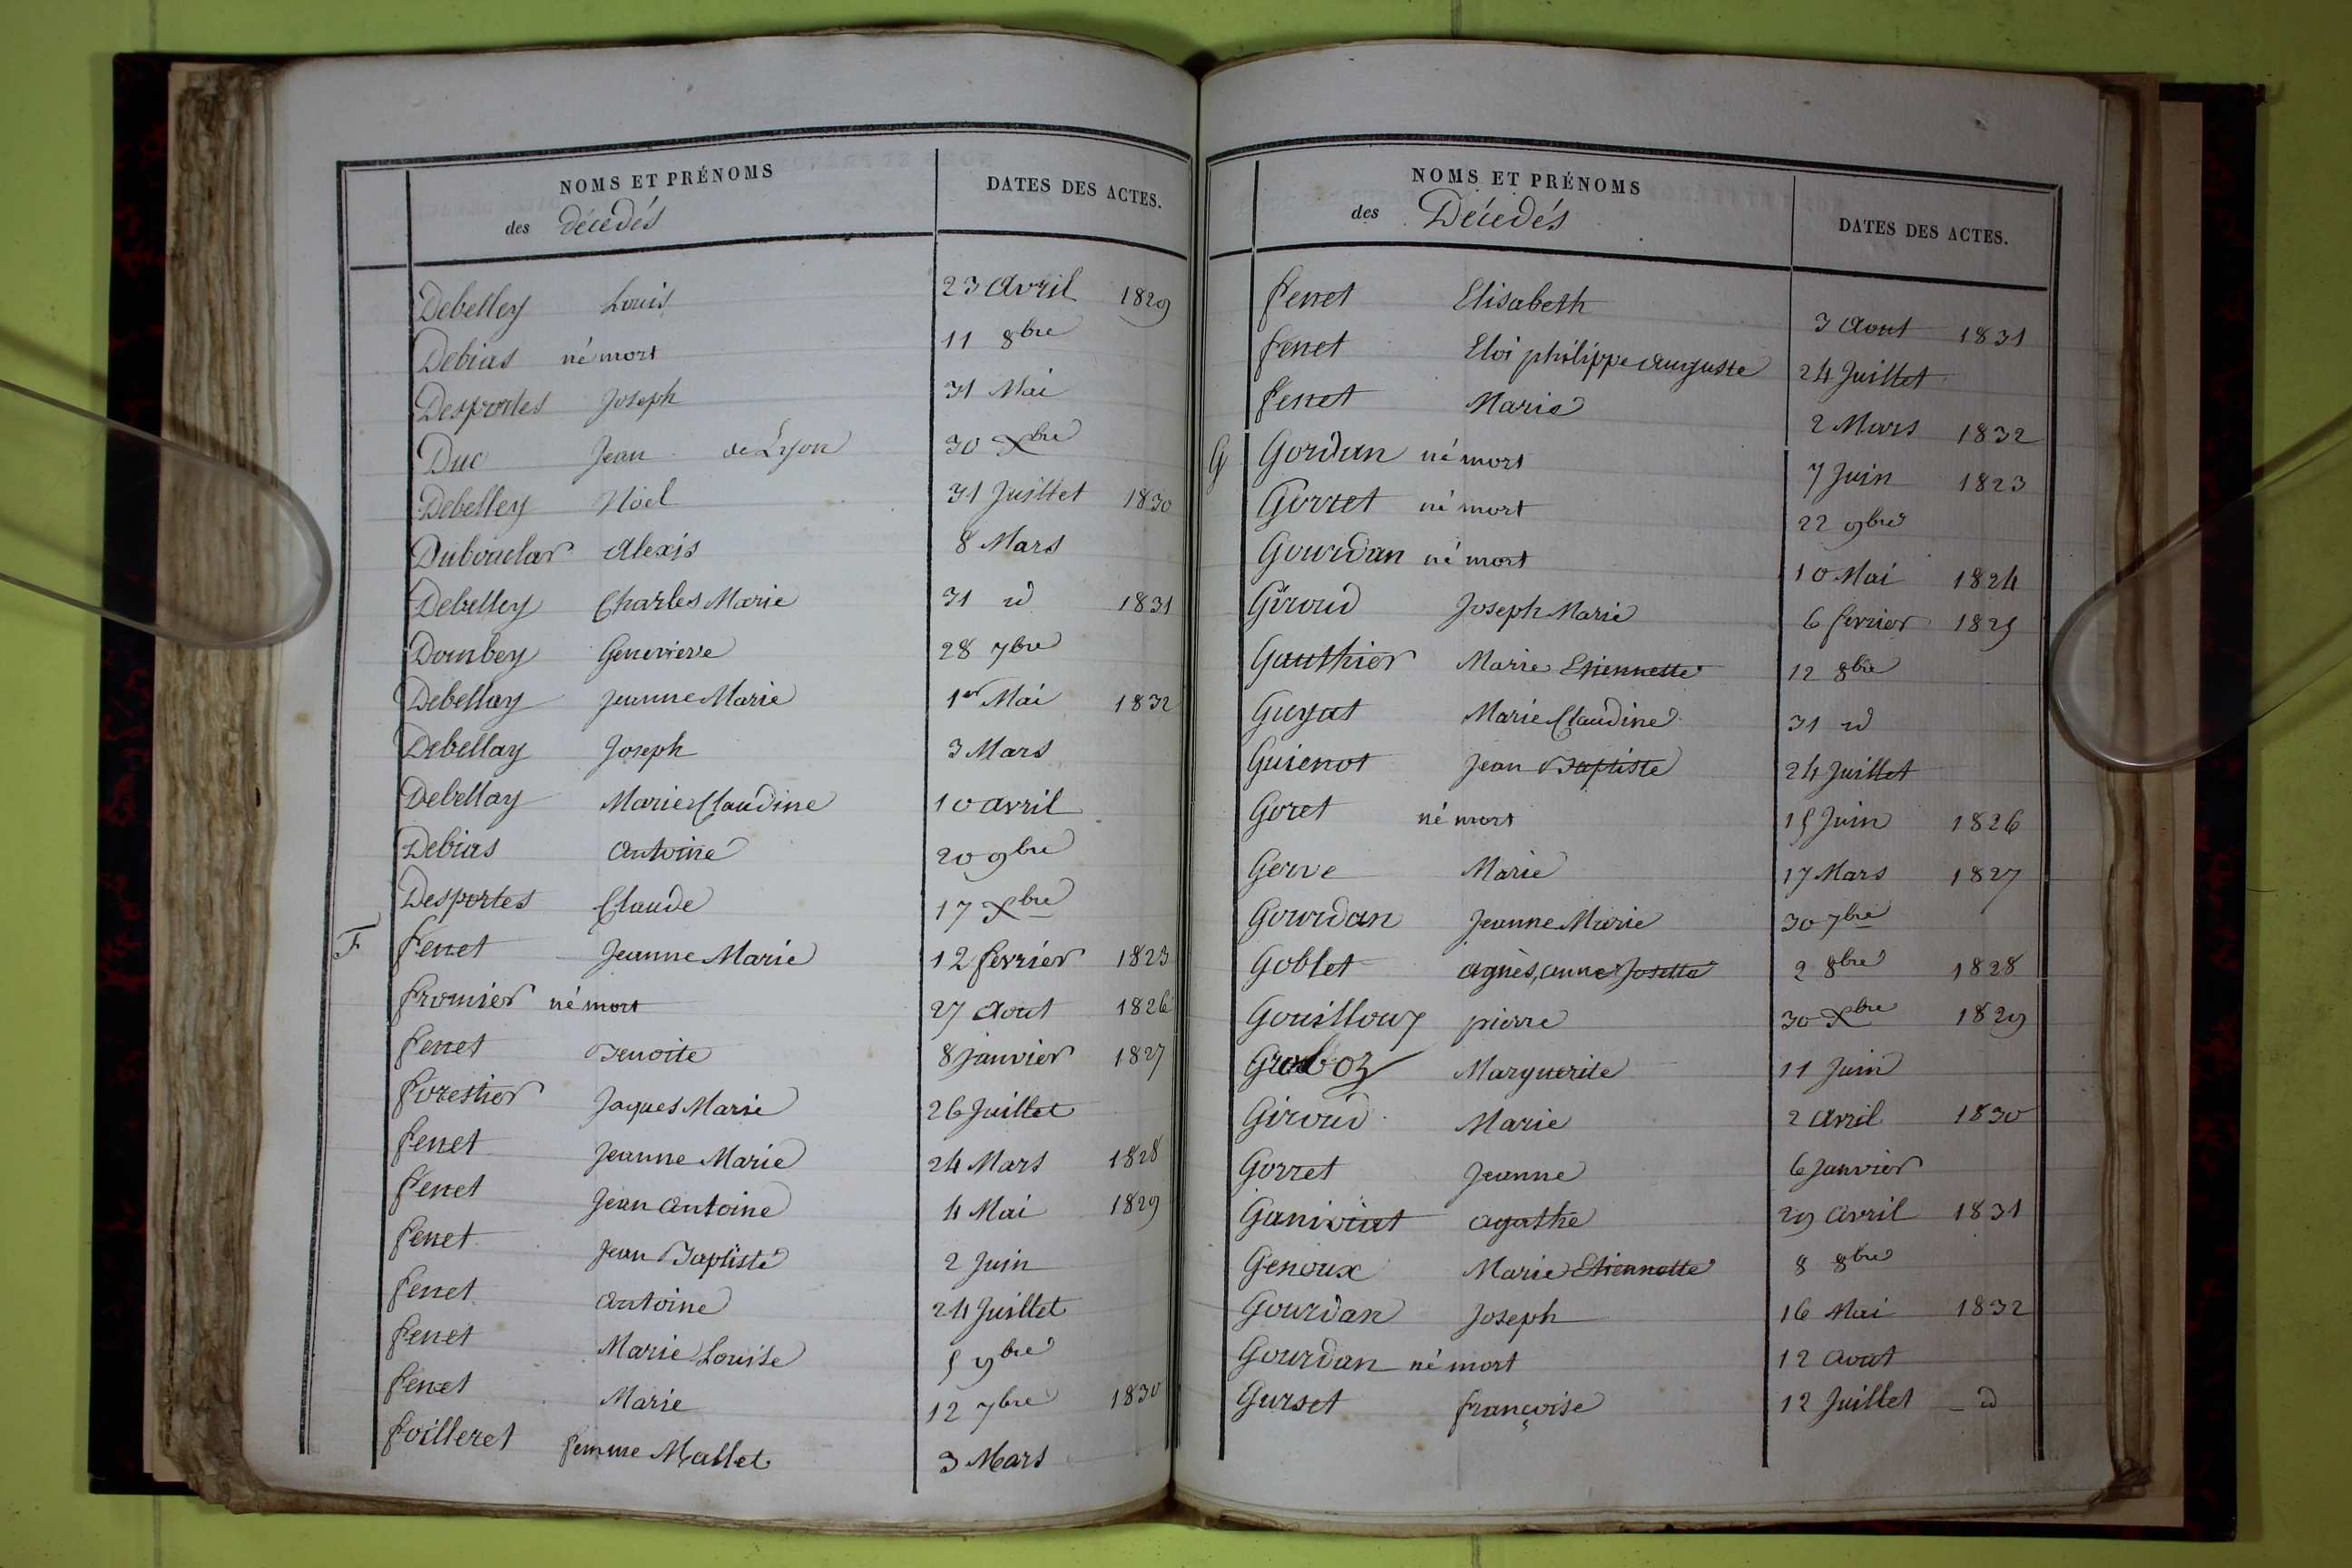 NOMS ET PRÉNOMS
des Décedés
DATES DES ACTES.
Debelley Louis 23 Avril 1829
Debias né mort 11 8bre
Desportes Joseph 31 Mai
Duc Jean de Lyon 30 Xbre
Debelley Noël 31 Juillet 1830
Duboudar Alexis 8 Mars
Debelley Charles Marie 31 id 1831
Dombey Genevieve 28 7bre
Debellay Jeanne Marie 1er Mai 1832
Debellay Joseph 3 Mars
Debellay Marie Claudine 10 avril
Debias Antoine 20 9bre
Desportes Claude 17 Xbre
F fenet Jeanne Marie 12 fevrier 1823
fromier né mort 27 Aout 1826
fenet Benoite 8 janvier 1827
forestier Jaques Marie 26 Juillet
fenet Jeanne Marie 24 Mars 1828
fenet Jean Antoine 4 Mai 1829
fenet Jean Baptiste 2 Juin
fenet Antoine 24 Juillet
fenet Marie Louise 5 9bre
fenet Marie 12 7bre 1830
foilleret femme Mallet 3 Mars
NOMS ET PRÉNOMS
des Décedés
DATES DES ACTES.
fenet Elisabeth 3 Aout 1831
fenet Eloi philippe Auguste 24 Juillet
fenet Marie 2 Mars 1832
G Gordan né mort 7 Juin 1823
Gorret né mort 22 9bre
Gourdan né mort 10 Mai 1824
Giroud Joseph Marie 6 fevrier 1825
Gauthier Marie Etiennette 12 8bre
Guyat Marie Claudine 31 id
Guienot Jean Baptiste 24 Juillet
Goret né mort 15 Juin 1826
Gerve Marie 17 Mars 1827
Gourdan Jeanne Marie 30 7bre
Goblet agnès, anne Josette 2 8bre 1828
Gouilloux pierre 30 Xbre 1829
Grosboz Marguerite 11 Juin
Giroud Marie 2 Avril 1830
Gorret Jeanne 6 Janvier
Ganiviat agathe 29 Avril 1831
Genoux Marie Etiennette 8 8bre
Gourdan Joseph 16 Mai 1832
Gourdan né mort 12 Aout
Gurset françoise 12 Juillet _ d